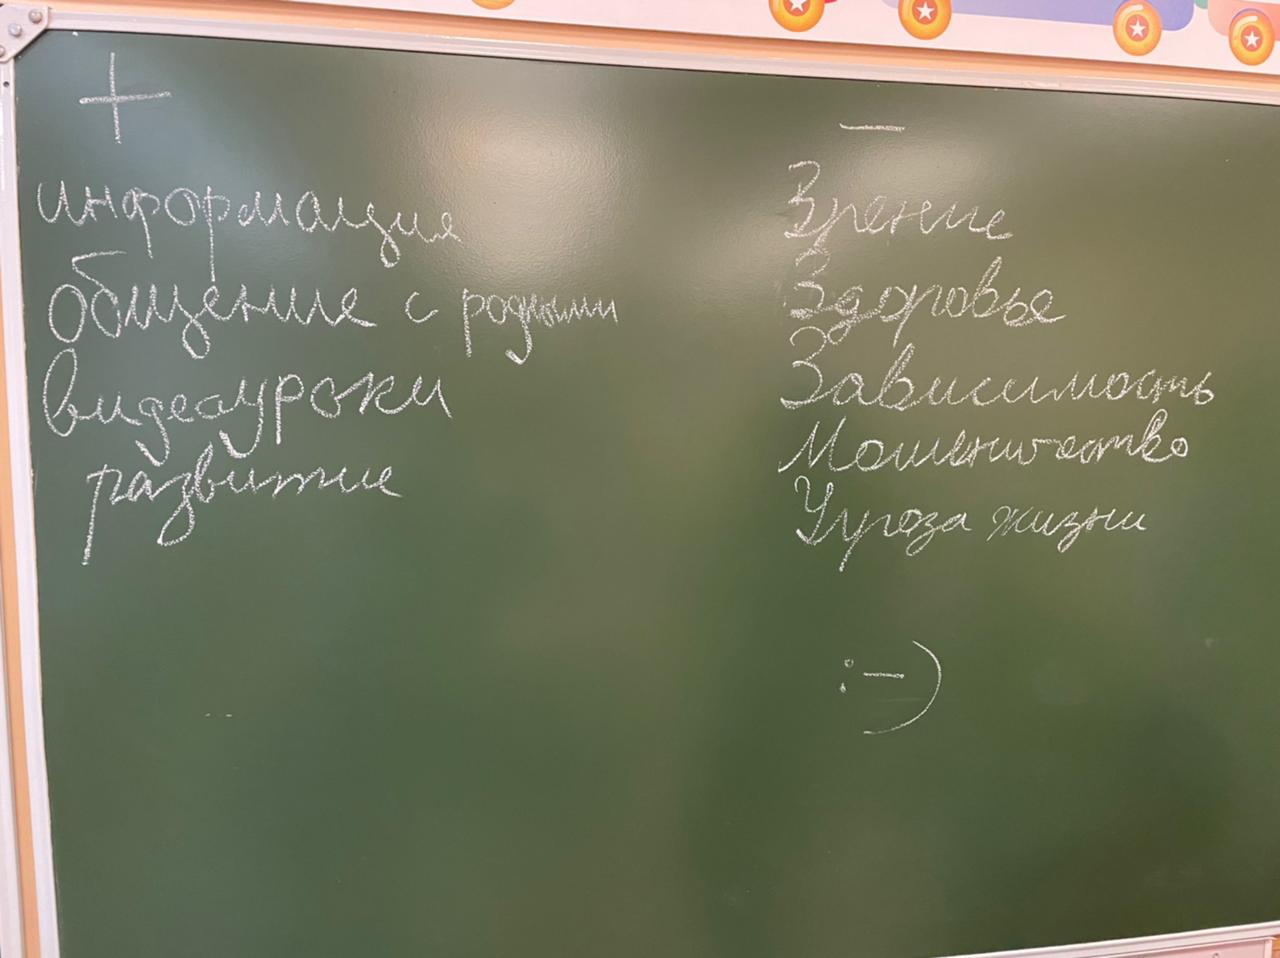 +
информация
общение с родными
видеоуроки
развитие
–
Зрение
Здоровье
Зависимость
Мошеничество
Угроза жизни
:–)